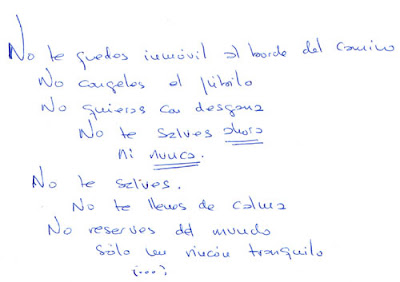 No te quedes inmóvil al borde del camino
No congeles el júbilo
No quieras con desgana
No te salves ahora
ni nunca.
No te salves.
No te llenes de calma
No reserves del mundo
sólo un rincón tranquilo
(...)